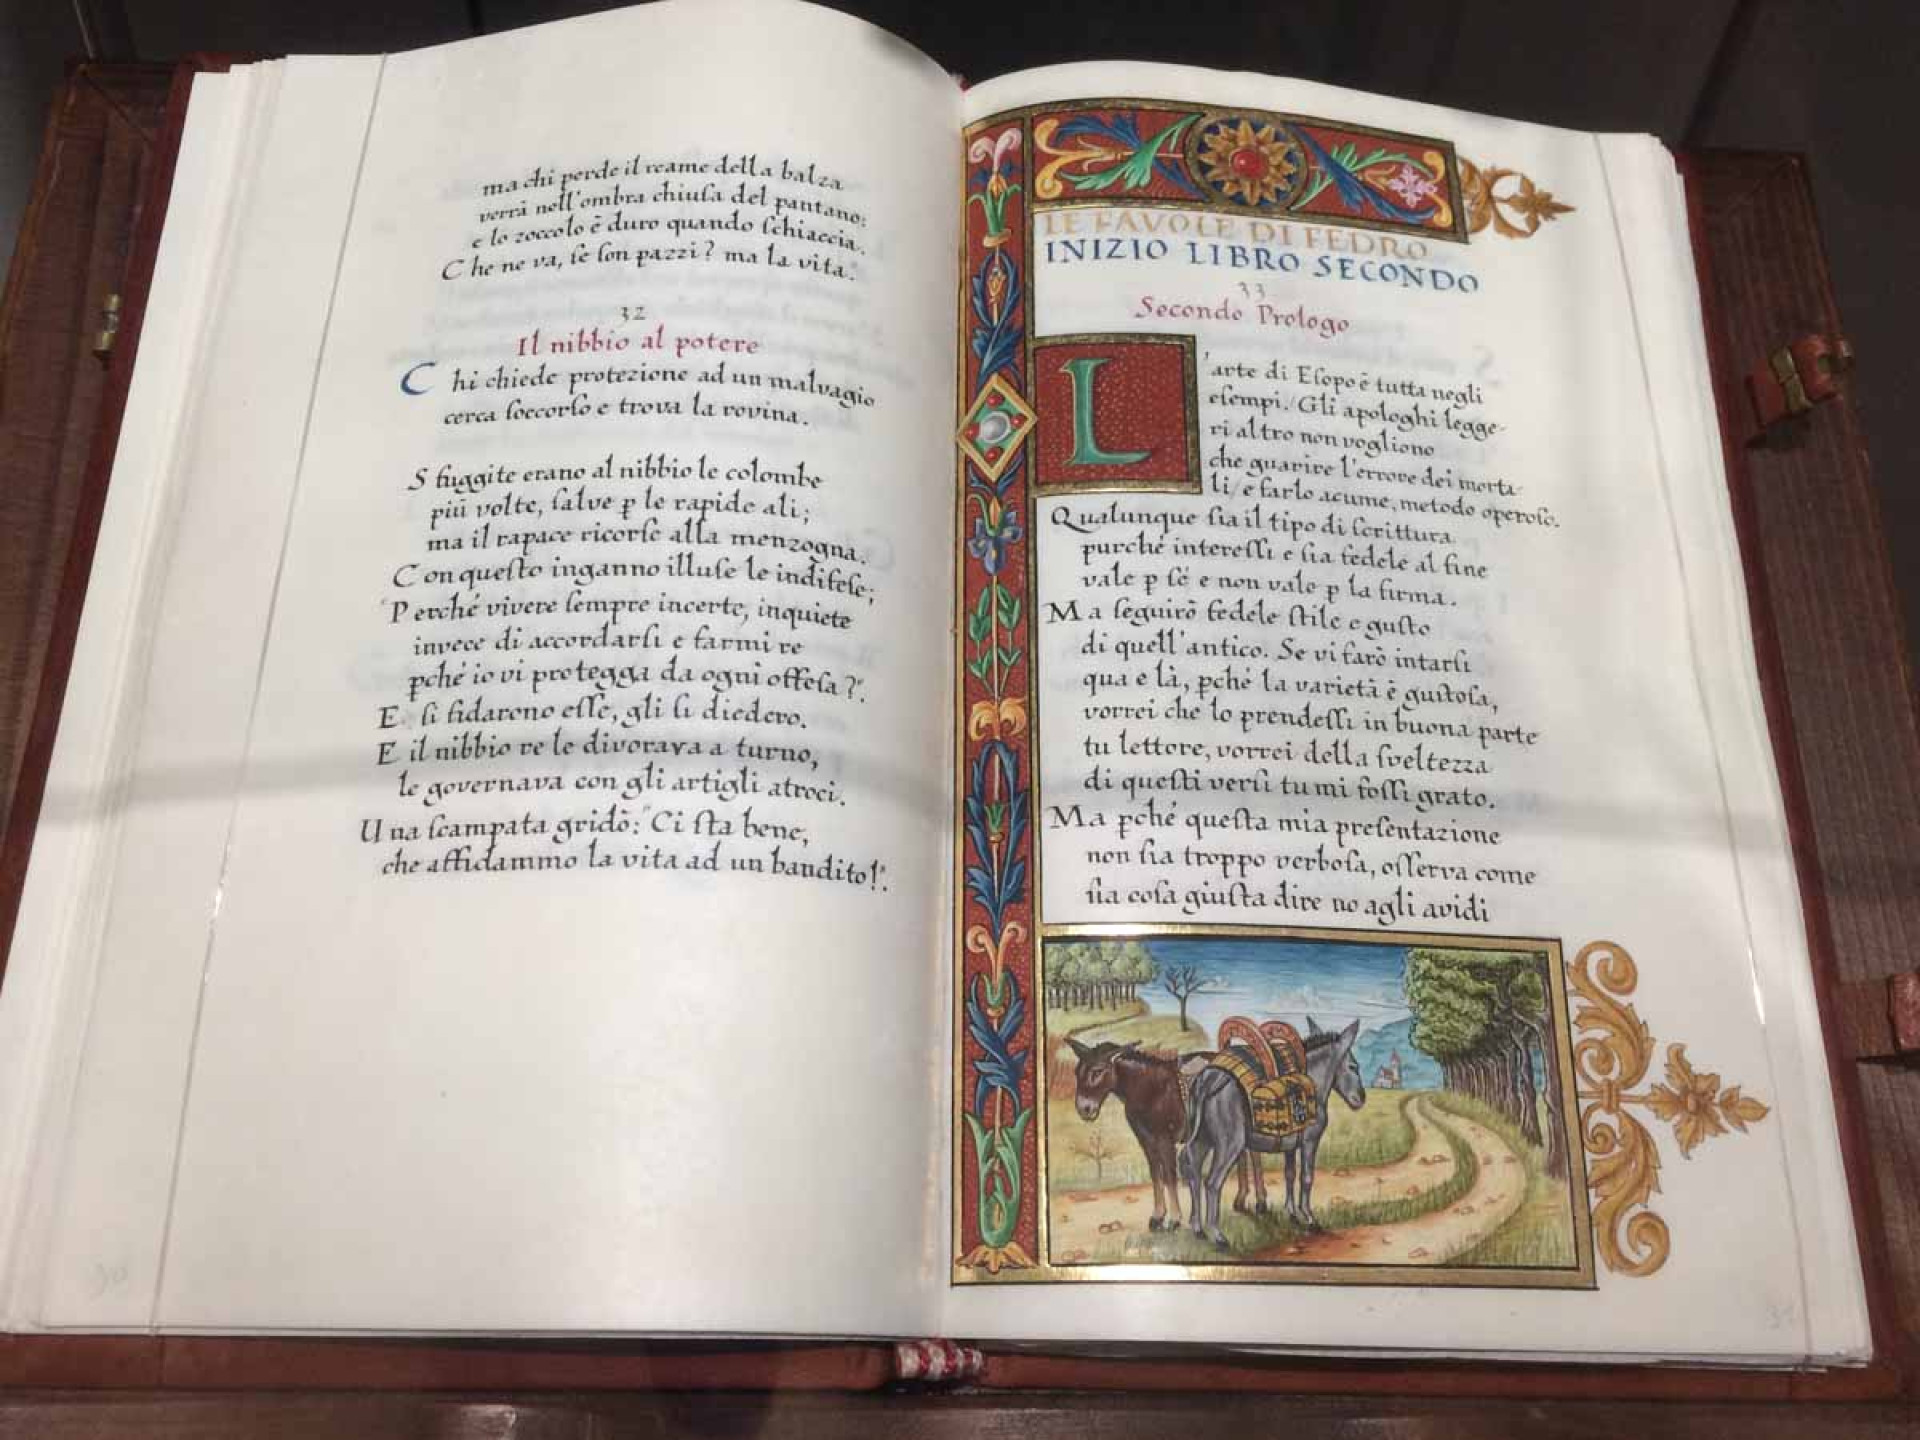 ma chi perde il reame della balza
verrà nell'ombra chiuſa del pantano:
e lo zoccolo è duro quando ſchiaccia.
Che ne va, ſe ſon pazzi? ma la vita.
32
Il nibbio al potere
Chi chiede protezione ad un malvagio
cerca ſoccorſo e trova la rovina.
Sfuggite erano al nibbio le colombe
più volte, ſalve ꝑ le rapide ali;
ma il rapace ricorſe alla menzogna.
Con queſto inganno illuſe le indifeſe;
"Perché vivere ſempre incerte, inquiete
invece di accordarſi e farmi re
ꝑché io vi protegga da ogni offeſa?".
E ſi fidarono eſſe, gli ſi diedero.
E il nibbio re le divorava a turno,
le governava con gli artigli atroci.
Una ſcampata gridò: "Ci ſta bene,
che affidammo la vita ad un bandito!".
30
LE FAVOLE DI FEDRO
INIZIO LIBRO SECONDO
33
Secondo Prologo
L'arte di Eſopo è tutta negli
eſempi. Gli apologhi legge-
ri altro non vogliono
che guarire l'errore dei morta-
li/ e farlo acume, metodo operoſo.
Qualunque ſia il tipo di ſcrittura
purché intereſſi e ſia fedele al fine
vale ꝑ ſé e non vale ꝑ la firma.
Ma ſeguirò fedele ſtile e guſto
di quell'antico. Se vi farò intarſi
qua e là, ꝑché la varietà è guſtoſa,
vorrei che lo prendeſſi in buona parte
tu lettore, vorrei della ſveltezza
di queſti verſi tu mi foſſi grato.
Ma ꝑché queſta mia preſentazione
non ſia troppo verboſa, oſſerva come
ſia coſa giuſta dire no agli avidi